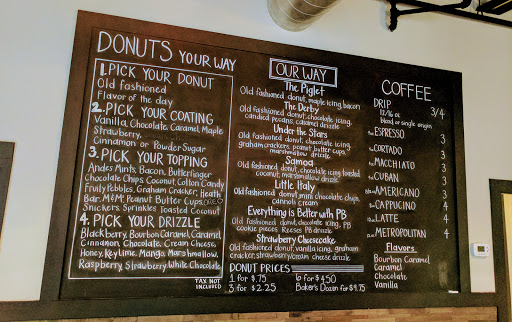 DONUTS YOUR WAY
1. PICK YOUR DONUT
Old fashioned
Flavor of the day
2. PICK YOUR COATING
Vanilla, Chocolate, Caramel, Maple
Strawberry,
Cinnamon or Powder Sugar
3. PICK YOUR TOPPING
Andes Mints, Bacon, Butterfinger
Chocolate Chips, Coconut, Cotton Candy
Fruity Pebbles, Graham Cracker, Heath
Bar, M&M, Peanut Butter Cups, OREO
Snickers, Sprinkles Toasted Coconut
4. PICK YOUR DRIZZLE
Blackberry, Bourbon Caramel, Caramel
Cinnamon, Chocolate, Cream Cheese,
Honey, Key Lime, Mango, Marshmallow,
Raspberry, Strawberry, White Chocolate
TAX NOT
INCLUDED
OUR WAY
The Piglet
Old fashioned donut, maple icing, bacon
The Derby
Old fashioned donut, chocolate icing,
candied pecans, caramel drizzle
Under the Stars
Old fashioned donut, chocolate icing,
graham crackers, peanut butter cups,
marshmallow drizzle
Samoa
Old fashioned donut, chocolate icing, toasted
coconut, marshmallow drizzle
Little Italy
Old fashioned donut, mini chocolate chips,
cannoli cream
Everything is Better with PB
Old fashioned donut, chocolate icing, PB
cookie pieces Reeses PB drizzle
Strawberry Cheesecake
Old fashioned donut, vanilla icing, graham
cracker, strawberry/cream cheese drizzle
DONUT PRICES
1 for $.75
6 for $4.50
3 for $2.25
Baker's Dozen for $9.75
COFFEE
DRIP 3/4
12/16 oz
blend or single origin
ESPRESSO 3
CORTADO 3
MACCHIATO 3
CUBAN 3
AMERICANO 3
CAPPUCINO 4
LATTE 4
METROPOLITAN 4
Flavors
Bourbon Caramel
Caramel
Chocolate
Vanilla